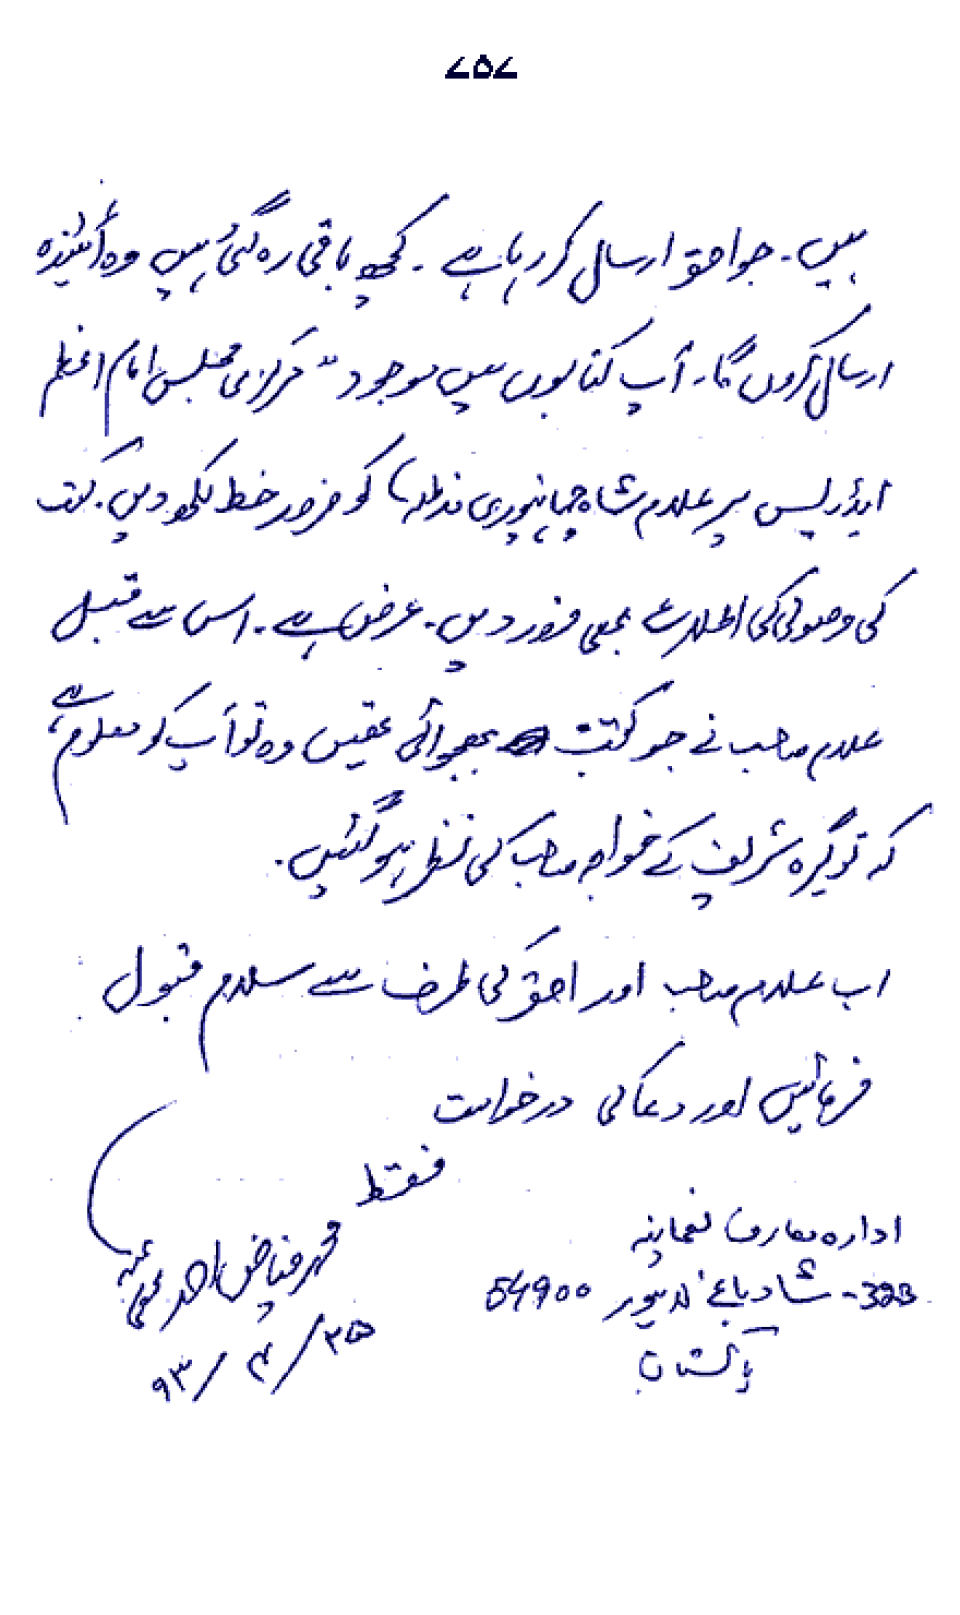 ۷۵۷
ہیں۔ جو احقر ارسال کر رہا ہے۔ کچھ باقی رہ گئی ہیں وہ آئندہ
ارسال کروں گا۔ آپ کتابوں میں موجود "مرکزی مجلس امام اعظم
ایڈریس پر علامہ شاہجہانپوری مدظلہ) کو ضرور خط لکھ دیں۔ کتب
کی وصولی کی اطلاع بھی ضرور دیں۔ عرض ہے۔ اس سے قبل
علامہ صاحب نے جو کتب بھجوائی تھیں وہ تو آپ کو معلوم ہے
کہ توگیرہ شریف کے خواجہ صاحب کی نظر ہو گئیں۔
اب علامہ صاحب اور احقر کی طرف سے سلام قبول
فرمائیں اور دعا کی درخواست
فقط
محمد فیاض احمد عفی عنہ
۲۵/۴/۹۳
ادارہ معارف نعمانیہ
323- شاد باغ لاہور 54900
پاکستان